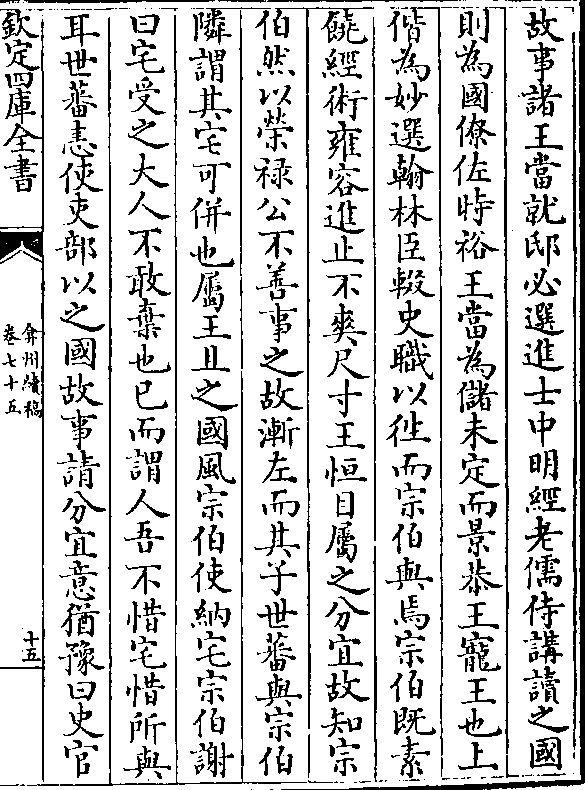 故事諸王當就邸必選進士中明經老儒侍講讀之國
則為國僚佐時裕王當為儲未定而景恭王寵王也上
偕為妙選翰林臣輟史職以徃而宗伯與焉宗伯既素
饒經術雍容進止不爽尺寸王恒目屬之分宜故知宗
伯然以榮禄公不善事之故漸左而其子世蕃與宗伯
隣謂其宅可併也屬王且之國風宗伯使納宅宗伯謝
曰宅受之大人不敢棄也已而謂人吾不惜宅惜所與
耳世蕃恚使吏部以之國故事請分宜意猶豫曰史官
欽定四庫全書
弇州續稿
卷七十五
十五